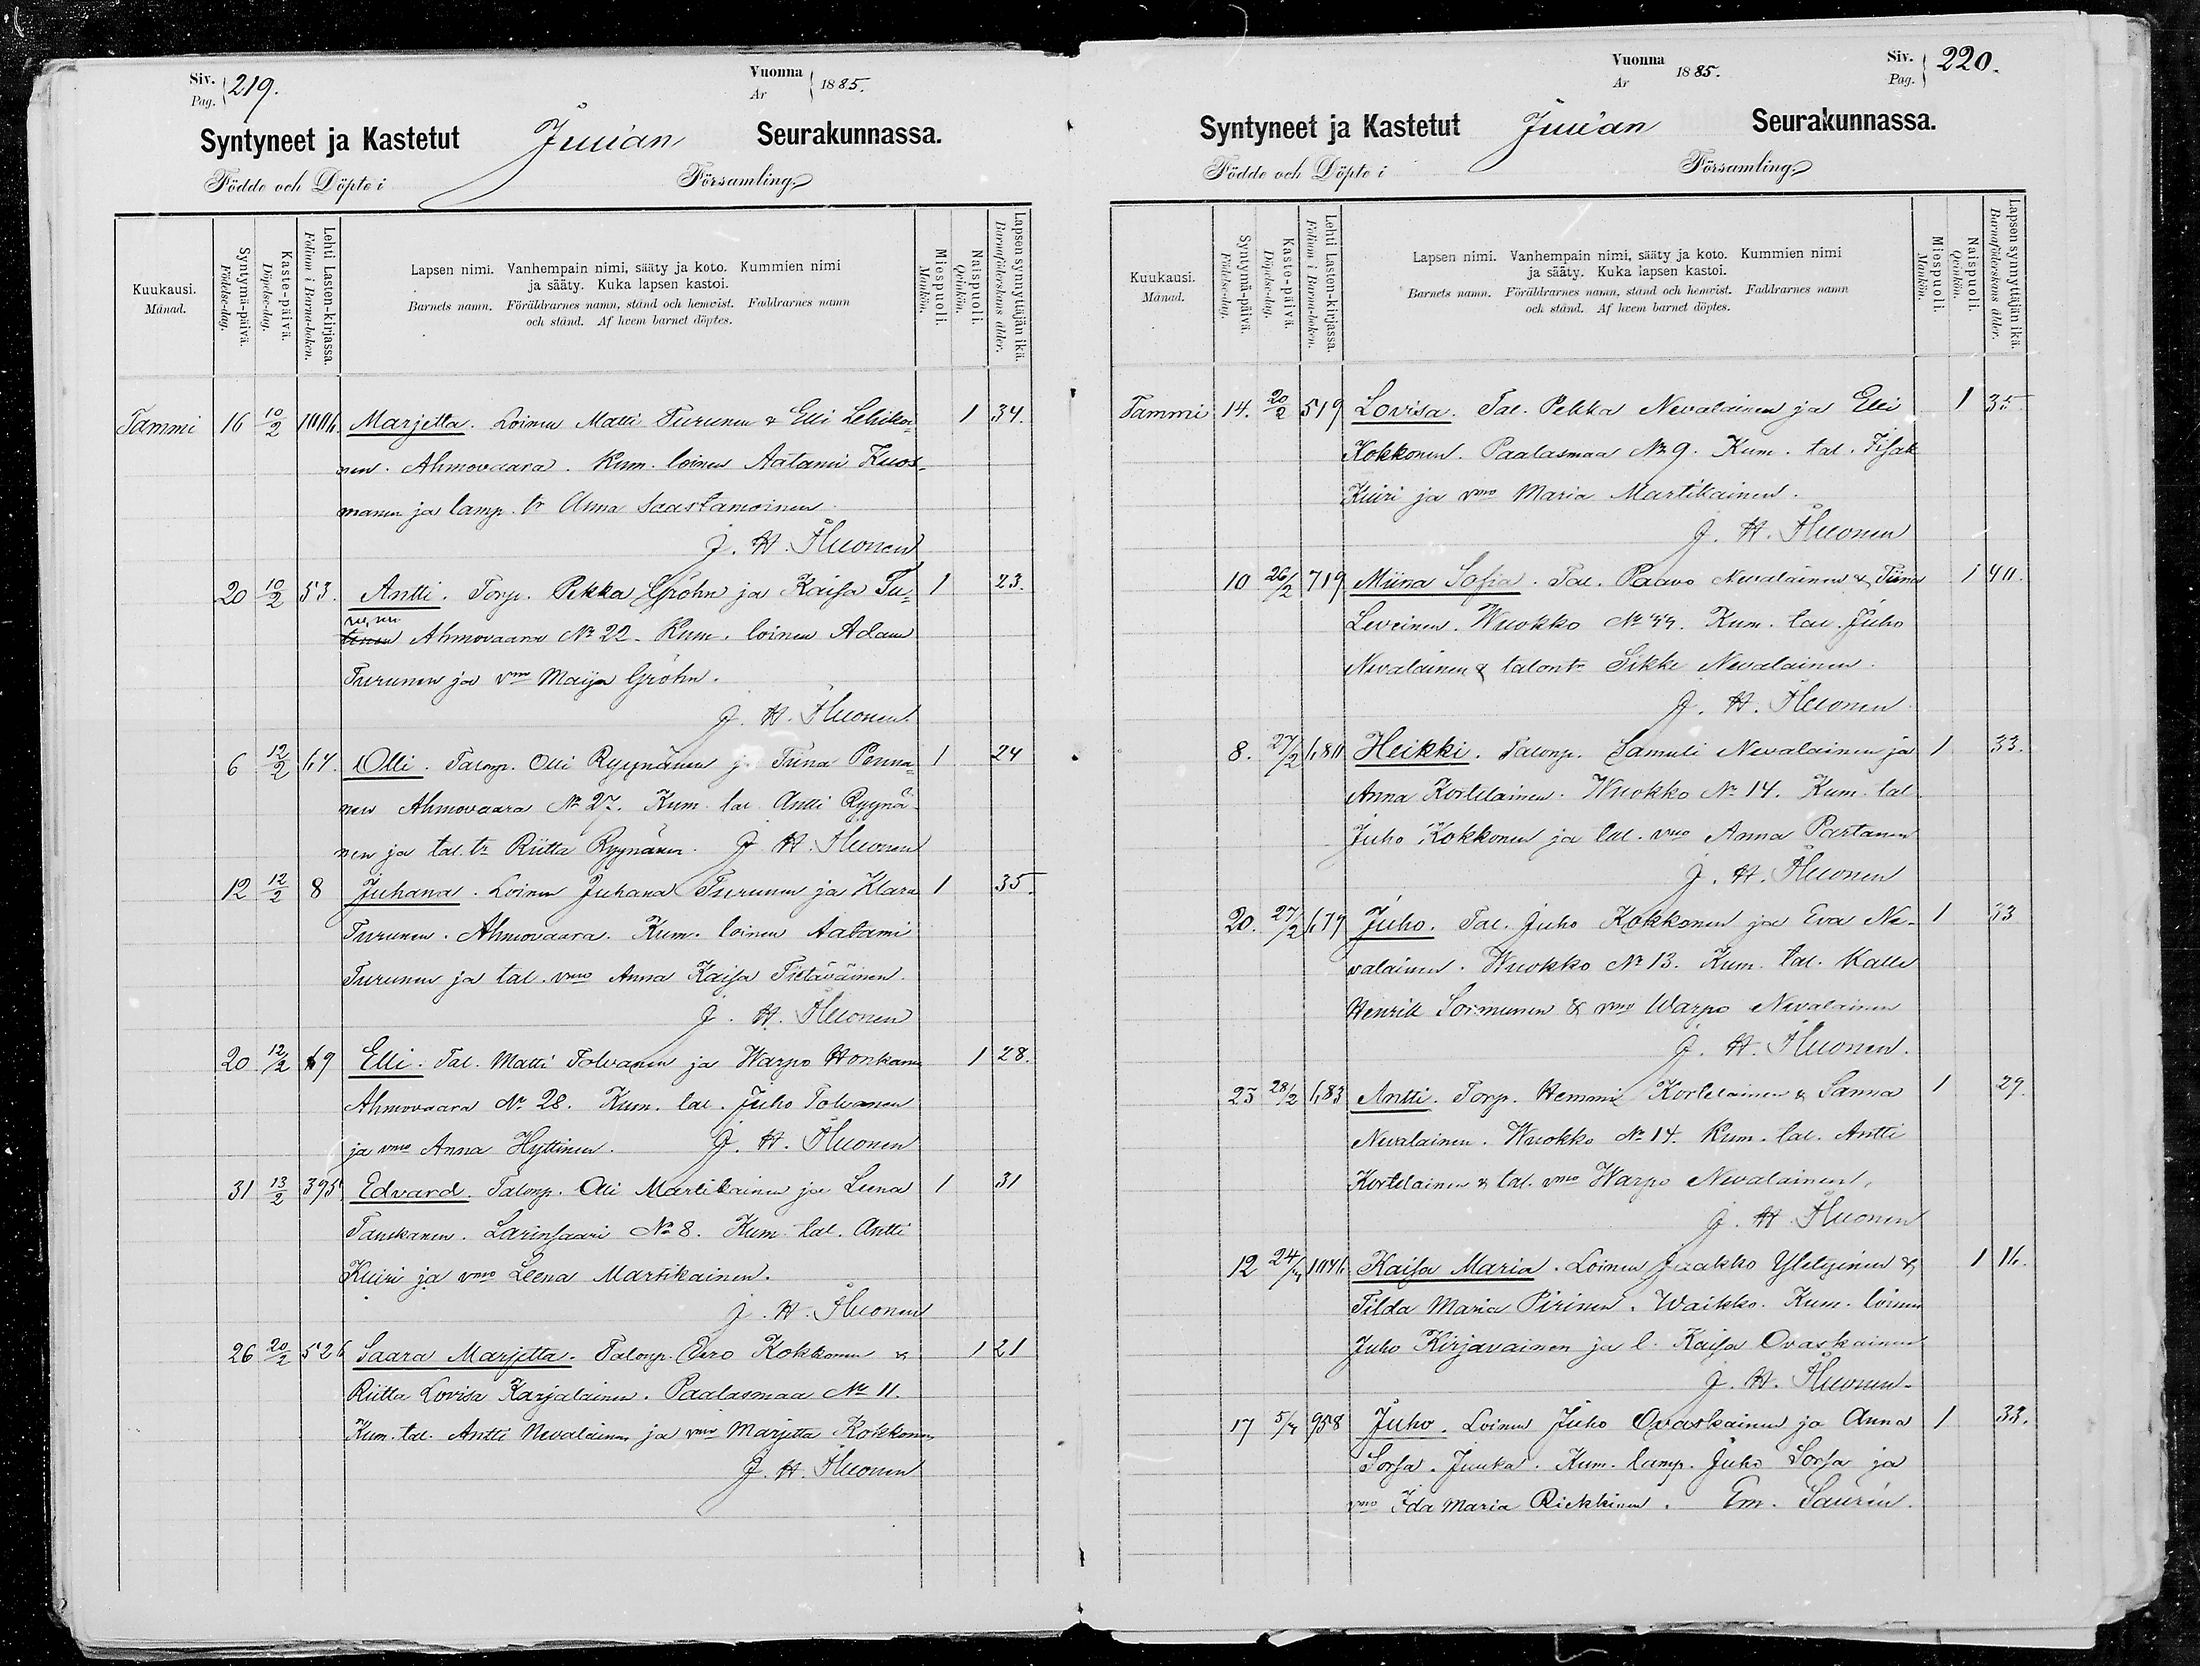 Siv. Pag. 219.
Vuonna År 1885.
Syntyneet ja Kastetut Juuan Seurakunnassa.
Födde och Döpte i Församling.
Kuukausi. Månad.
Syntymä-päivä. Födelse-dag.
Kaste-päivä. Döpelse-dag.
Lehti Lasten-kirjassa. Folium i Barna-boken.
Lapsen nimi. Vanhempain nimi, sääty ja koto. Kummien nimi
ja sääty. Kuka lapsen kastoi.
Barnets namn. Föräldrarnes namn, stånd och hemvist. Faddrarnes namn
och stånd. Af hvem barnet döptes.
Miespuoli. Mankön.
Naispuoli. Qvinkön.
Lapsen synnyttäjän ikä. Barnaföderskans ålder.
Tammi 16 10/2 Marjetta. Loinen Matti Turunen & Elli Lehiko- 1 34.
nen. Ahmovaara. Kum. loinen Aatami Kuos-
manen ja lamp. tr Anna Saastamoinen.
J. H. Åhuonen
20 10/2 53. Antti. Torp. Pekka Gröhn ja Kaisa Tu- 1 23.
runen Ahmovaara No 22. Kum. loinen Adam
Turunen ja vmo Maija Gröhn.
J. H. Åhuonen.
6 12/2 64. Olli. Talonp. Olli Ryynänen j. Tiina Penna- 1 24
nen Ahmovaara No 27. Kum. tal. Antti Ryynä-
nen ja tal. tr Riitta Ryynänen. J. H. Åhuonen
12 12/2 8 Juhana. Loinen Juhana Turunen ja Klara 1 35.
Turunen. Ahmovaara. Kum. loinen Aatami
Turunen ja tal. vmo Anna Kaisa Tietäväinen.
J. H. Åhuonen
20 12/2 69 Elli. Tal. Matti Tolvanen ja Warpo Honkanen 1 28.
Ahmovaara No 28. Kum. tal. Juho Tolvanen
ja vmo Anna Hyttinen. J. H. Åhuonen
31 13/2 395 Edvard. Talonp. Oli Martikainen ja Leena 1 31
Tanskanen. Larinsaari No 8. Kum. tal. Antti
Kuiri ja vmo Leena Martikainen.
J. H. Åhuonen
26 20/2 526 Saara Marjetta. Talonp. Eero Kokkonen & 1 21
Riitta Lovisa Karjalainen. Paalasmaa No 11.
Kum. tal. Antti Nevalainen ja vmo Marjetta Kokkonen
J. H. Åhuonen
Vuonna År 1885.
Siv. Pag. 220.
Syntyneet ja Kastetut Juuan Seurakunnassa.
Födde och Döpte i Församling.
Kuukausi. Månad.
Syntymä-päivä. Födelse-dag.
Kaste-päivä. Döpelse-dag.
Lehti Lasten-kirjassa. Folium i Barna-boken.
Lapsen nimi. Vanhempain nimi, sääty ja koto. Kummien nimi
ja sääty. Kuka lapsen kastoi.
Barnets namn. Föräldrarnes namn, stånd och hemvist. Faddrarnes namn
och stånd. Af hvem barnet döptes.
Miespuoli. Mankön.
Naispuoli. Qvinkön.
Lapsen synnyttäjän ikä. Barnaföderskans ålder.
Tammi 14. 20/2 519 Lovisa. Tal. Pekka Nevalainen ja Elli 1 35
Kokkonen. Paalasmaa No 9. Kum. tal. Iisak
Kuiri ja vmo Maria Martikainen.
J. H. Åhuonen
10 26/2 719 Miina Sofia. Tal. Paavo Nevalainen & Tiina 1 40.
Leveinen. Wuokko No 44. Kum. tal. Juho
Nevalainen & talontr Sikke Nevalainen.
J. H. Åhuonen
8. 27/2 680 Heikki. Talonp. Samuli Nevalainen ja 1 33.
Anna Kortelainen. Wuokko No 14. Kum. tal.
Juho Kokkonen ja tal. vmo Anna Partanen
J. H. Åhuonen
20. 27/2 679 Juho. Tal. Juho Kokkonen ja Eva Ne- 1 33
valainen. Wuokko No 13. Kum. tal. Kalle
Henrik Sormunen & vmo Warpo Nevalainen
J. H. Åhuonen.
23 28/2 683 Antti. Torp. Hemmi Kortelainen & Sanna 1 29.
Nevalainen. Wuokko No 14. Kum. tal. Antti
Kortelainen & tal. vmo Warpo Nevalainen.
J. H. Åhuonen
12 24/4 1046 Kaisa Maria. Loinen Jaakko Yletyinen & 1 16.
Tilda Maria Pirinen. Waikko. Kum. loinen
Juho Kirjavainen ja l. Kaisa Ovaskainen
J. H. Åhuonen.
17 5/4 958 Juho. Loinen Juho Ovaskainen ja Anna 1 33.
Sorsa. Juuka. Kum. lamp. Juho Sorsa ja
vmo Ida Maria Riekkinen. Em. Saurén.